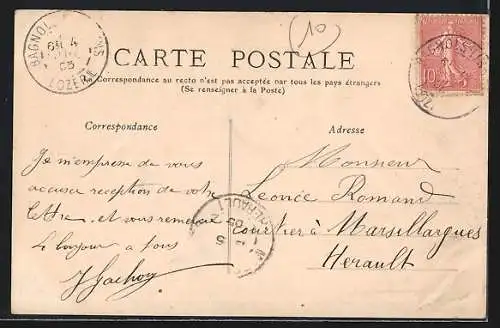 BAGNOLS-LES-BAINS
LOZÈRE
10
CARTE POSTALE
La Correspondance au recto n'est pas acceptée par tous les pays étrangers
(Se renseigner à la Poste)
BAGNOLS-LES
10
Correspondance
Adresse
Je m'empresse de vous
accuser réception de votre
lettre, et vous remercie
Le bonjour à tous
Monsieur
Léonce Romand
Courtier à Marsillargues
Herault
HERAULT